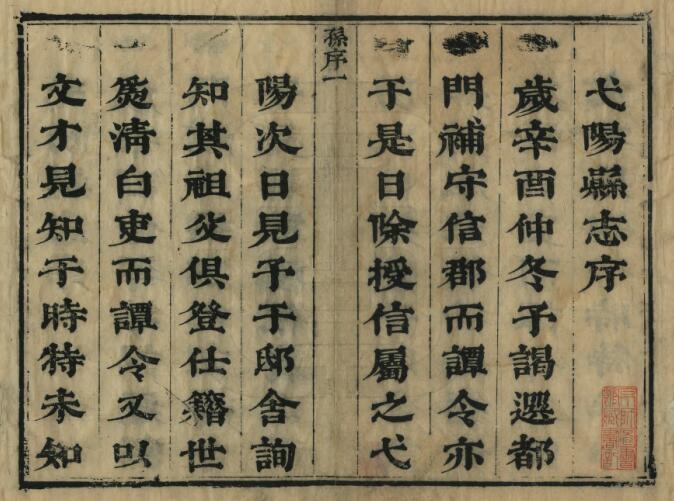 弋陽縣志序
歲辛酉仲冬予謁選都
門補守信郡而譚令亦
于是日除授信屬之弋
孫序一
陽次日見予于邸舍詢
知其祖父俱登仕籍世
爲淸白吏而譚令又以
文才見知于時特未知